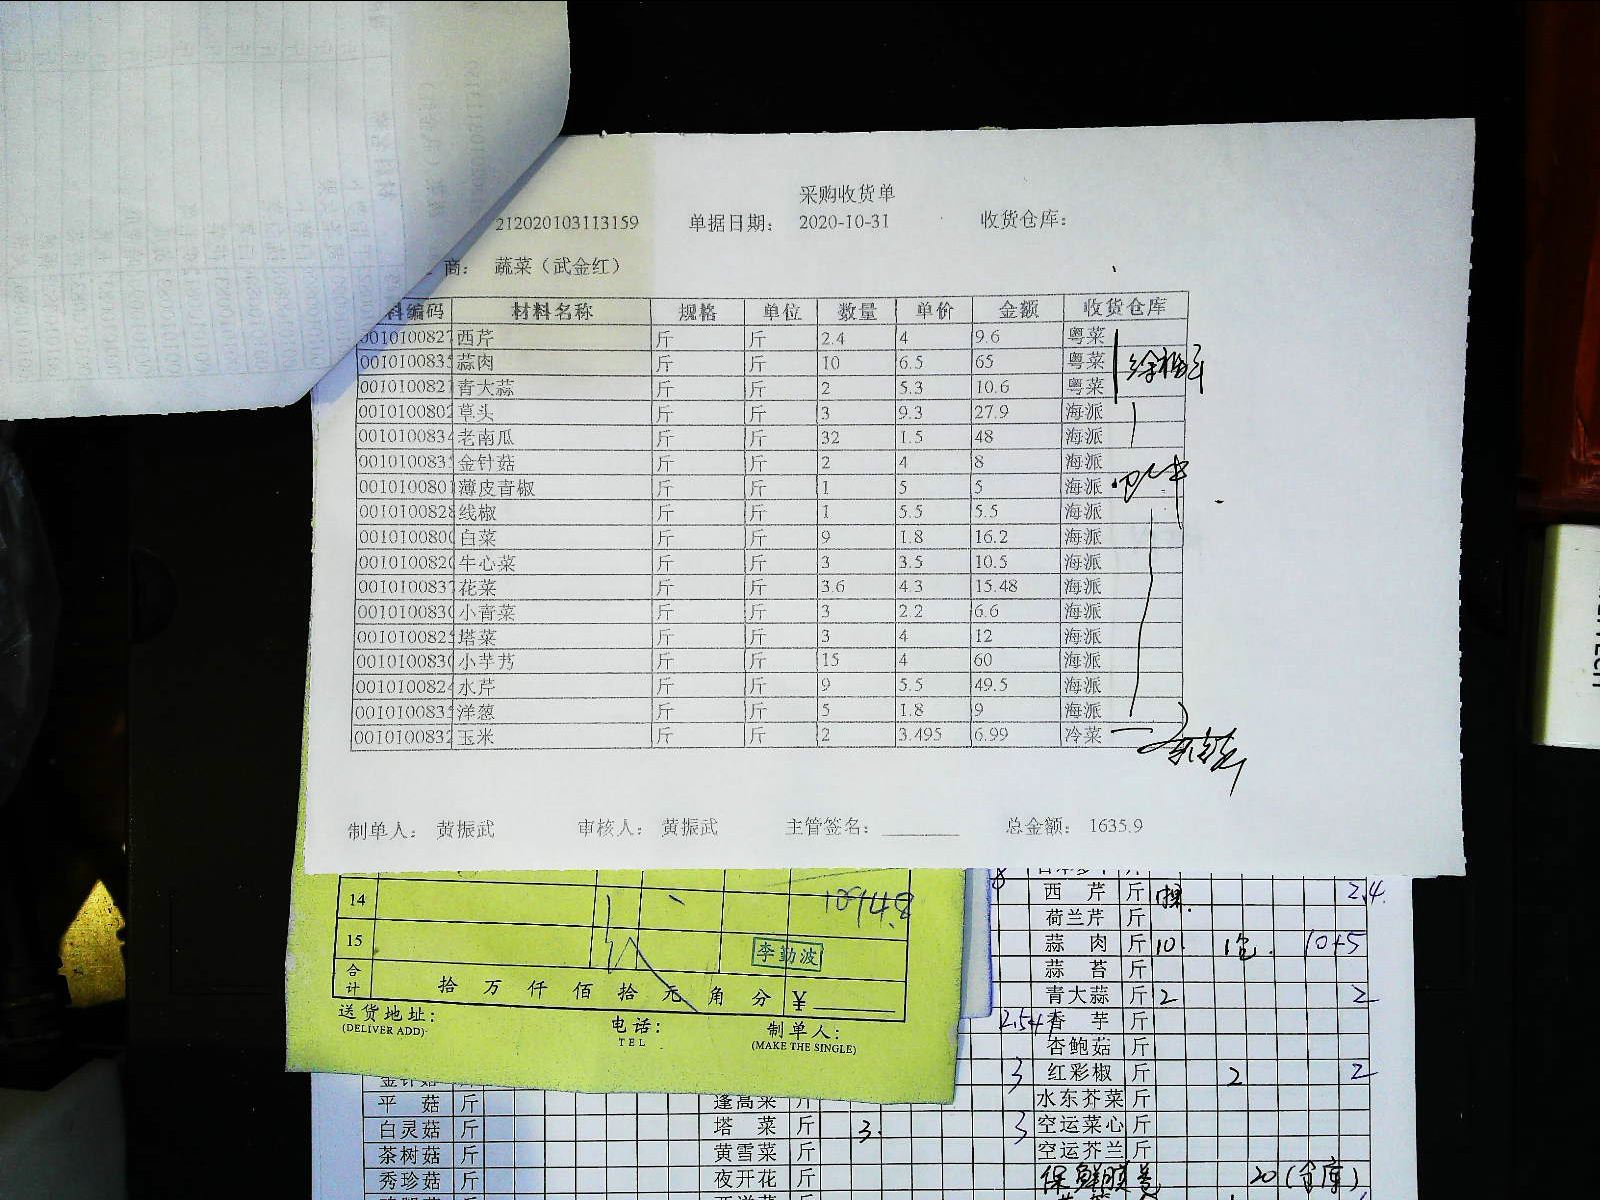 采购收货单
212020103113159 单据日期： 2020-10-31 收货仓库：
商： 蔬菜（武金红）
料编码 材料名称 规格 单位 数量 单价 金额 收货仓库
0010100827 西芹 斤 斤 2.4 4 9.6 粤菜
001010083 蒜肉 斤 斤 10 6.5 65 粤菜
0010100821 青大蒜 斤 斤 2 5.3 10.6 粤菜
0010100802 草头 斤 斤 3 9.3 27.9 海派
0010100834 老南瓜 斤 斤 32 1.5 48 海派
001010083 金针菇 斤 斤 2 4 8 海派
0010100801 薄皮青椒 斤 斤 1 5 5 海派
0010100828 线椒 斤 斤 1 5.5 5.5 海派
0010100800 白菜 斤 斤 9 1.8 16.2 海派
0010100820 牛心菜 斤 斤 3 3.5 10.5 海派
0010100837 花菜 斤 斤 3.6 4.3 15.48 海派
0010100830 小青菜 斤 斤 3 2.2 6.6 海派
001010082 塔菜 斤 斤 3 4 12 海派
0010100830 小芋艿 斤 斤 15 4 60 海派
0010100824 水芹 斤 斤 9 5.5 49.5 海派
001010083 洋葱 斤 斤 5 1.8 9 海派
0010100832 玉米 斤 斤 2 3.495 6.99 冷菜
制单人： 黄振武 审核人： 黄振武 主管签名： 总金额： 1635.9
14
15 李勤波
合计 拾 万 仟 佰 拾 元 角 分 ￥
送货地址： 电话： 制单人：
(DELIVER ADD) TEL (MAKE THE SINGLE)
西芹 斤 2.4
荷兰芹 斤
蒜肉 斤 10 1包 10+5
蒜苔 斤
青大蒜 斤 2 2
香芋 斤
杏鲍菇 斤
金针菇 3 红彩椒 斤 2 2
平菇 斤 蓬蒿菜 斤 水东芥菜 斤
白灵菇 斤 塔菜 斤 3 3 空运菜心 斤
茶树菇 斤 黄雪菜 斤 空运芥兰 斤
秀珍菇 斤 夜开花 斤 保鲜膜 20